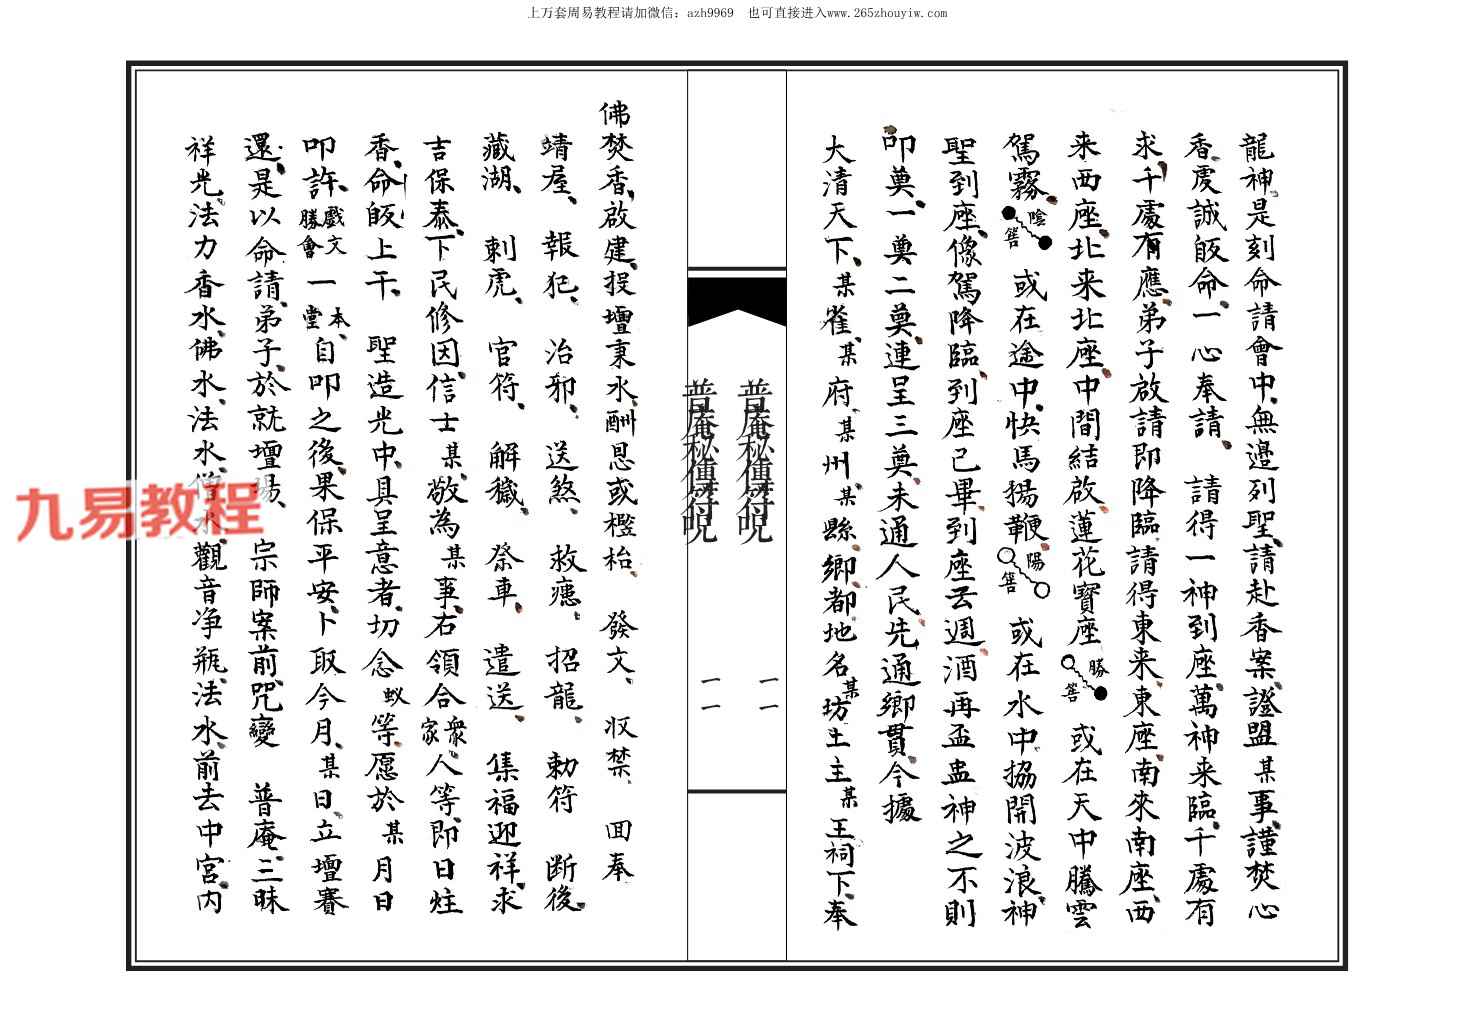 上万套周易教程请加微信：azh9969　也可直接进入www.265zhouyiw.com
龍神是刻命請會中無邊列聖請赴香案證盟某事謹焚心
香虔誠皈命一心奉請　請得一神到座萬神来臨千處有
求千處有應弟子啟請即降臨請得東来東座南來南座西
来西座北来北座中間結啟蓮花寶座　勝筶　或在天中騰雲
駕霧　陰筶　或在途中快馬揚鞭　陽筶　或在水中協開波浪神
聖到座像駕降臨到座已畢到座云週酒再盃盅神之不則
叩奠一奠二奠連呈三奠未通人民先通鄉貫今據
大清天下某雀某府某州某縣鄉都地名某坊土主某王祠下奉
普庵秘傳符咒
一一
普庵秘傳符咒
一一
佛焚香啟建投壇稟水酬恩或檻枱　發文　収禁　回奉
靖屋　報犯　治邪　送煞　救瘜　招龍　勅符　断後
藏湖　刺虎　官符　解穢　祭車　遣送　集福迎祥求
吉保泰下民修因信士某敬為某事右領合衆家人等即日炷
香命皈上干　聖造光中具呈意者切念蚁等愿於某月日
叩許戲文勝會一本堂自叩之後果保平安卜取今月某日立壇賽
還是以命請弟子於就壇場　宗師案前咒變　普庵三昧
祥光法力香水佛水法水僧水觀音净瓶法水前去中宮内
九易教程